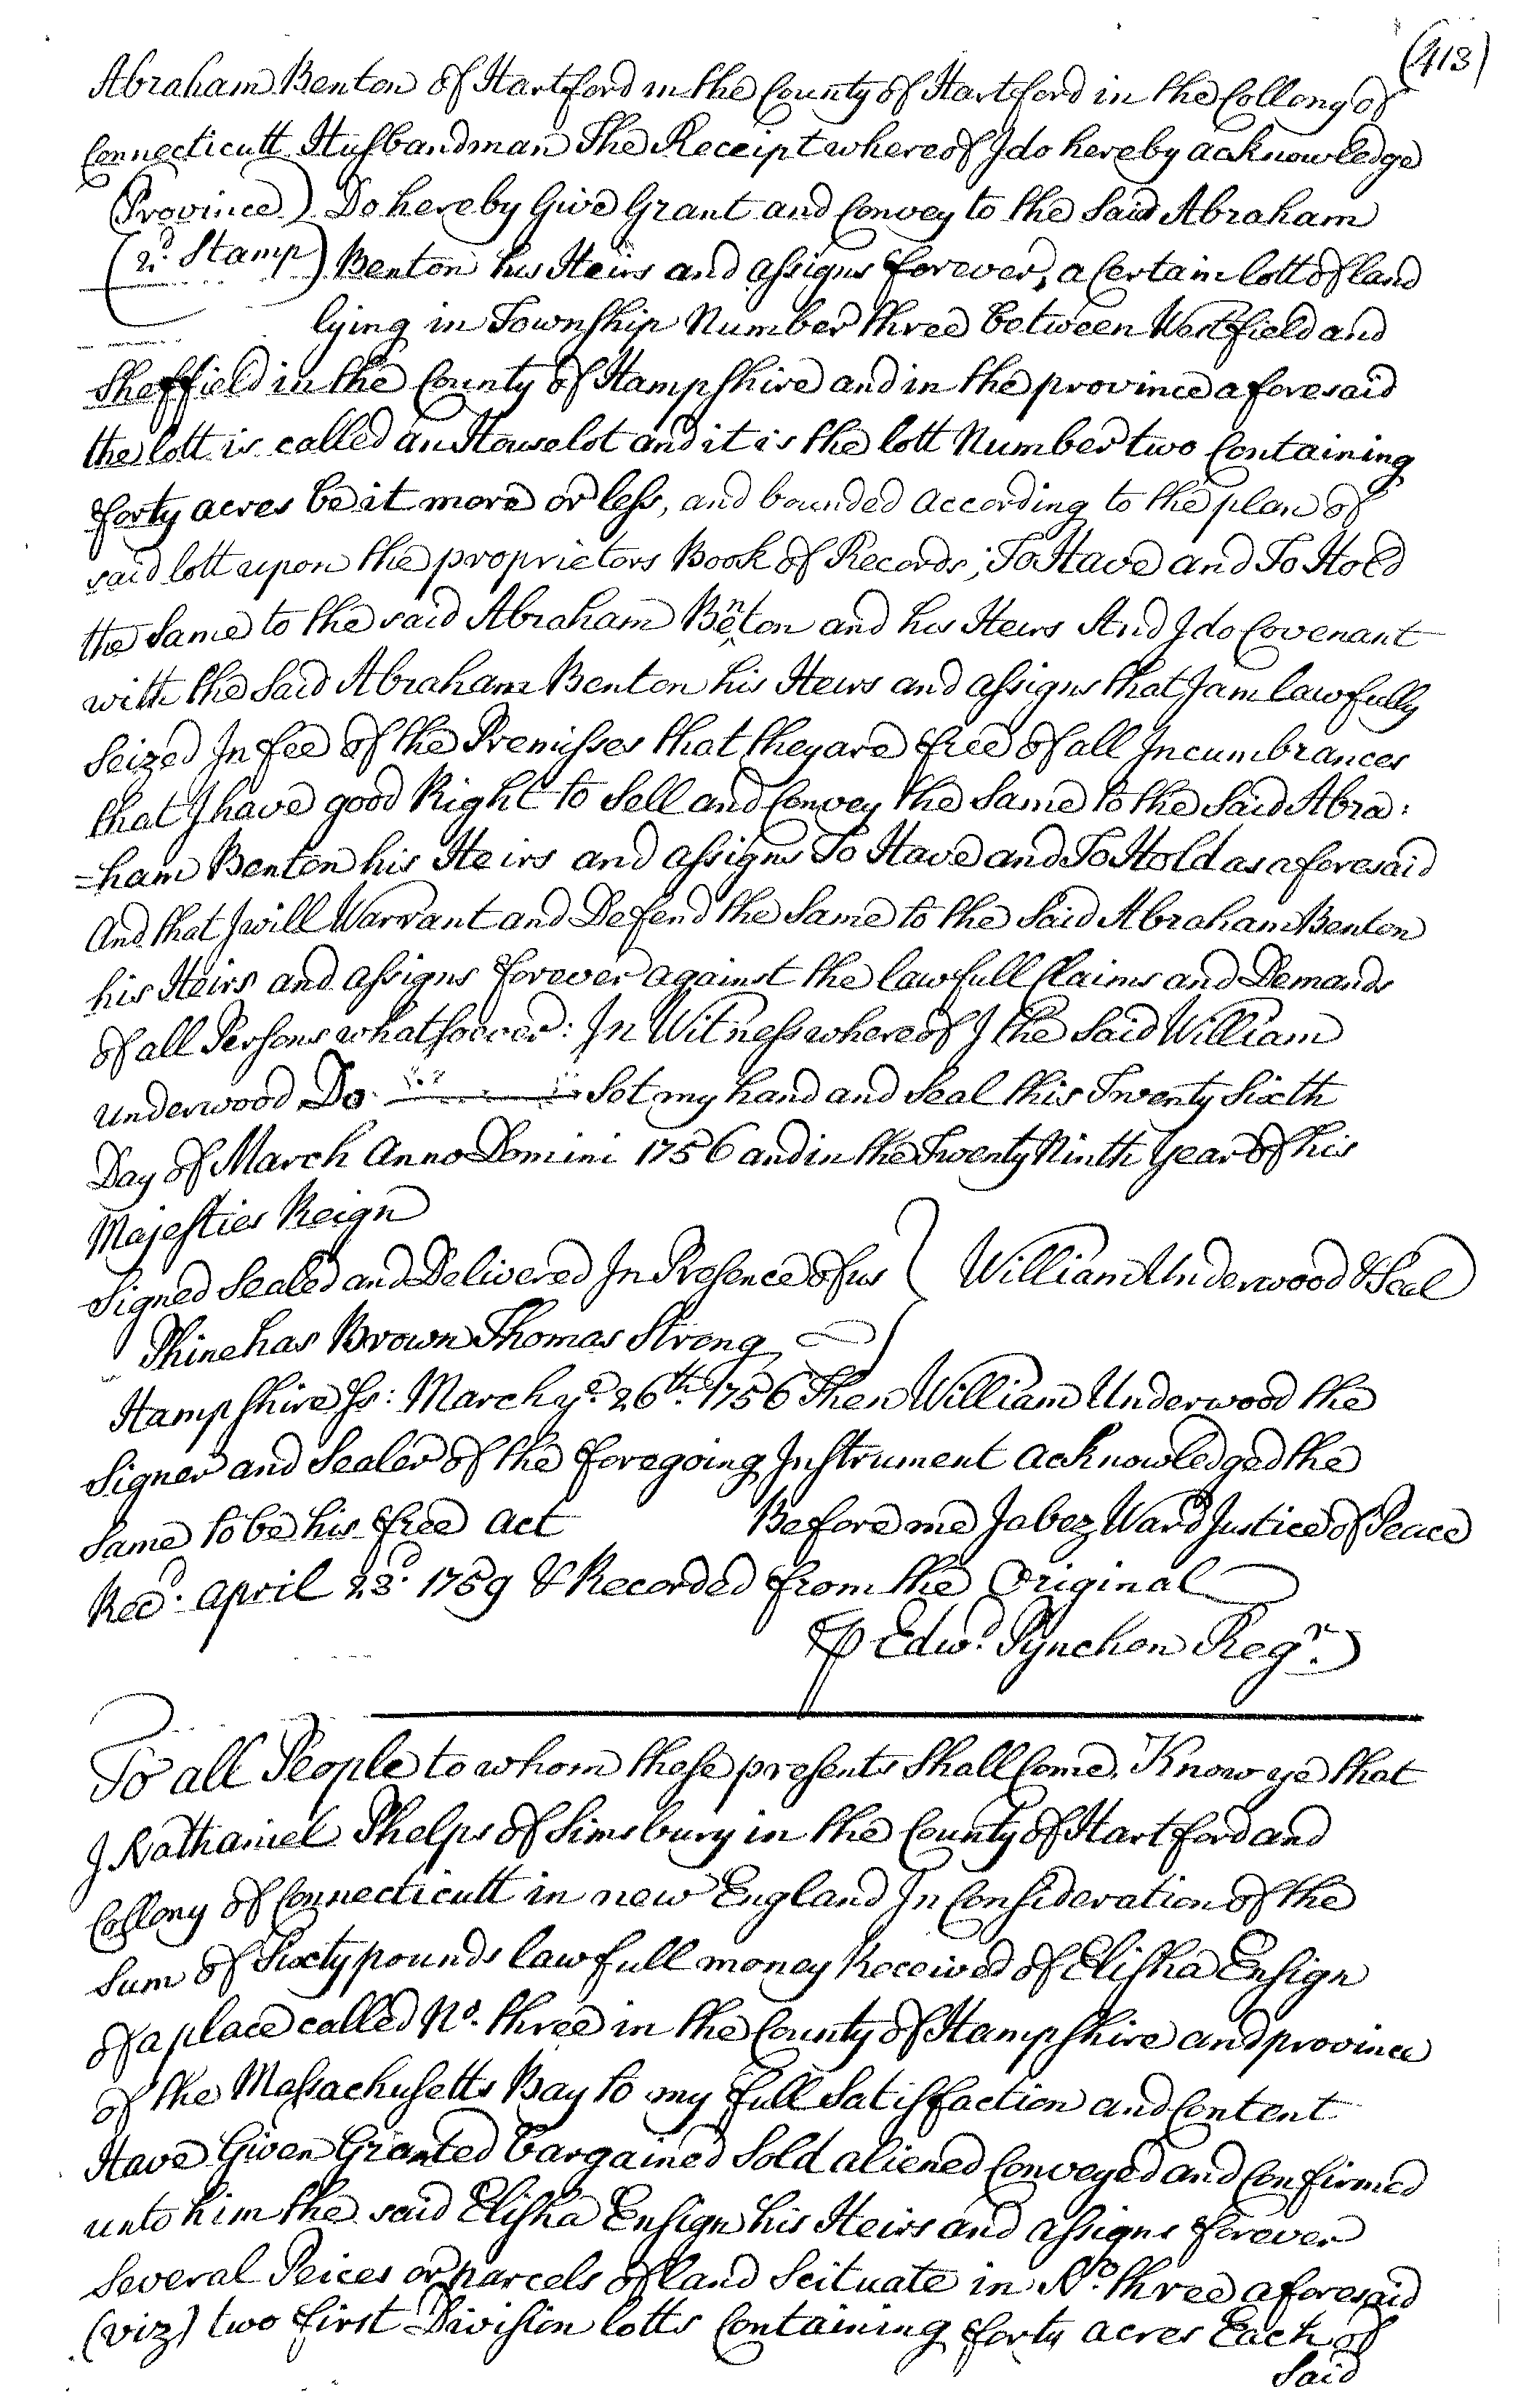 (413)
Abraham Benton of Hartford in the County of Hartford in the Collony of
Connecticutt Husbandman The Receipt whereof I do hereby acknowledge
(Province) Do hereby Give Grant and Convey to the Said Abraham
(2d. Stamp) Benton his Heirs and assigns forever, a Certain lott of land
lying in Township Number three between Westfield and
Sheffield in the County of Hampshire and in the province aforesaid
the lott is called an Houselot and it is the lott Number two Containing
forty acres be it more or less, and bounded according to the plan of
said lott upon the proprietors Book of Records; To Have and To Hold
the Same to the said Abraham Benton and his Heirs And I do Covenant
with the Said Abraham Benton his Heirs and assigns that I am lawfully
Seized In fee of the Premisses that they are free of all Incumbrances
that I have good Right to Sell and Convey the Same to the Said Abra:
=ham Benton his Heirs and assigns To Have and To Hold as aforesaid
And that I will Warrant and Defend the Same to the Said Abraham Benton
his Heirs and assigns forever against the lawfull Claims and Demands
of all Persons whatsoever: In Witness whereof I the Said William
Underwood Do Set my hand and Seal this Twenty Sixth
Day of March Anno Domini 1756 and in the Twenty Ninth Year of his
Majesties Reign
Signed Sealed and Delivered In Presence of us } William Underwood & Seal
Phinehas Brown Thomas Strong
Hampshire Ss: March ye. 26th. 1756 Then William Underwood the
Signer and Sealer of the foregoing Instrument acknowledged the
Same to be his free act Before me Jabez Ward Justice of Peace
Recd. april 23d. 1759 & Recorded from the Original
⅌ Edwd. Pynchon Regr.
To all People to whom these presents Shall Come, Know ye that
I Nathaniel Phelps of Simsbury in the County of Hartford and
Collony of Connecticutt in new England In Consideration of the
Sum of Sixty pounds lawfull money Received of Elisha Ensign
of a place called No. three in the County of Hampshire and province
of the Massachusetts Bay to my full Satisfaction and Content
Have Given Granted bargained Sold aliened Conveyed and Confirmed
unto him the said Elisha Ensign his Heirs and assigns forever
Several Peices or parcels of land Scituate in No. three aforesaid
(viz) two first Division lotts Containing forty acres Each of
Said